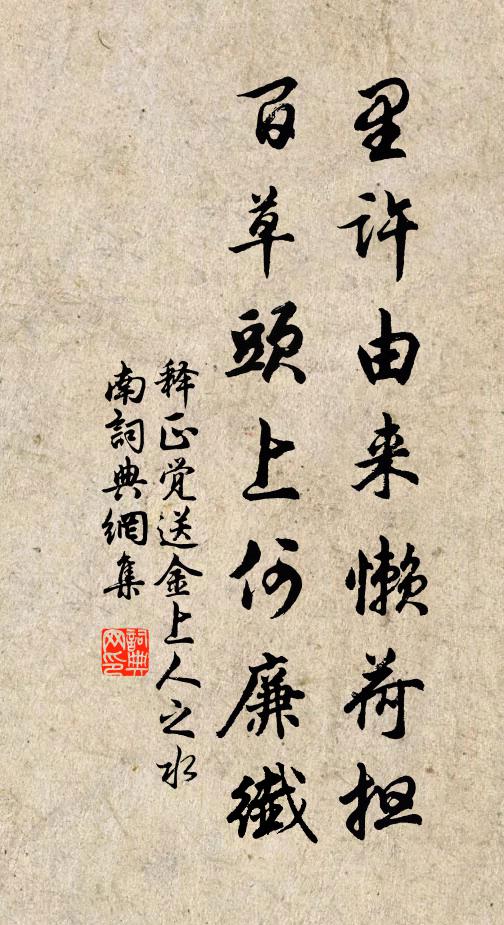 里许由来懒荷担
百草頭上何廉纖
释正觉送金上人之水
南詞典網集
詞典
网印